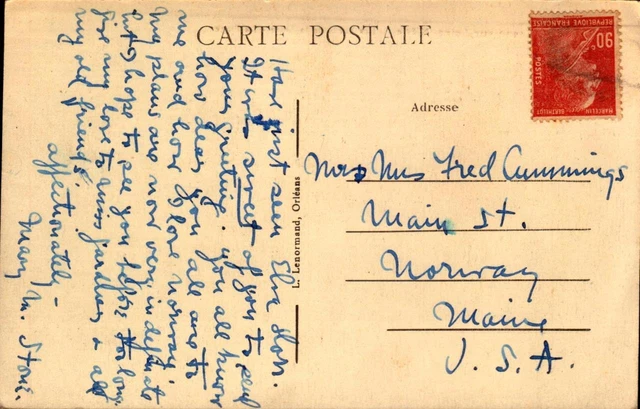 CARTE POSTALE
REPUBLIQUE FRANÇAISE
90c
POSTES
MARCELIN BERTHELOT
Adresse
Mrs Fred Cummings
Main St.
Norway
Maine
U.S.A.
L. Lenormand, Orléans
Have just seen
It was sweet of you to send
your greeting. you all know
how dear you all are to
me and how I love Norway.
my plans are now very indefinite
but I hope to see you before too long.
Give my love to & all
my old friends.
affectionately -
Mary M. Stone.